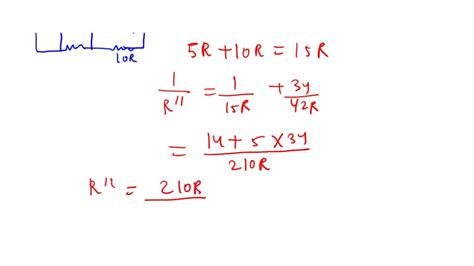 10R
5R + 10R = 15R
1/R" = 1/15R + 34/42R
= 14 + 5 × 34 / 210R
R" = 210R